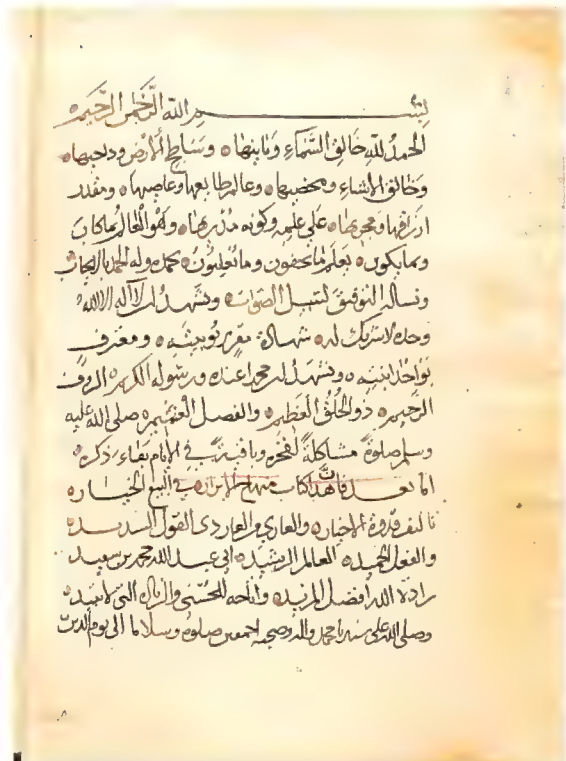 بسم الله الرحمن الرحيم
الحمد لله خالق السماء وما بينها ٥ وساطح الأرض وداحيها ٥
وخالق الأشياء ومحصيها ٥ وعالم طايعها وعاصيها ٥ ومقدر
ارزاقها ومجريها ٥ على علمه وكونه مدبرها ٥ وهو العالم بما كان
وبما يكون ٥ يعلم ما تخفون وما تعلنون ٥ بحمده وله الحمد
ونساله التوفيق لسبيل الصواب ٥ ونشهد ان لا اله الا الله
وحده لا شريك له ٥ شهادة مقر بربوبيته ٥ ومعترف
بواحدانيته ٥ ونشهد ان محمدا عبده ورسوله الكريم ٥ الروف
الرحيم ٥ ذو الخلق العظيم ٥ والفضل العميم ٥ صلى الله عليه
وسلم صلوة مشاكلة لفخره وباقية في الايام بقاء ذكره ٥
اما بعد فان هذا كتاب في البيع الخيار ٥
تاليف قدوة الاخيار ٥ القول السديد ٥
والفعل الحميد ٥ العالم الرشيد ٥ ابي عبد الله محمد بن سعيد
زاده الله افضل المزيد ٥ واناحه الحسنى والزيادة التي لا تبيد ٥
وصلى الله على سيدنا محمد واله وصحبه اجمعين صلوة وسلاما الى يوم الدين